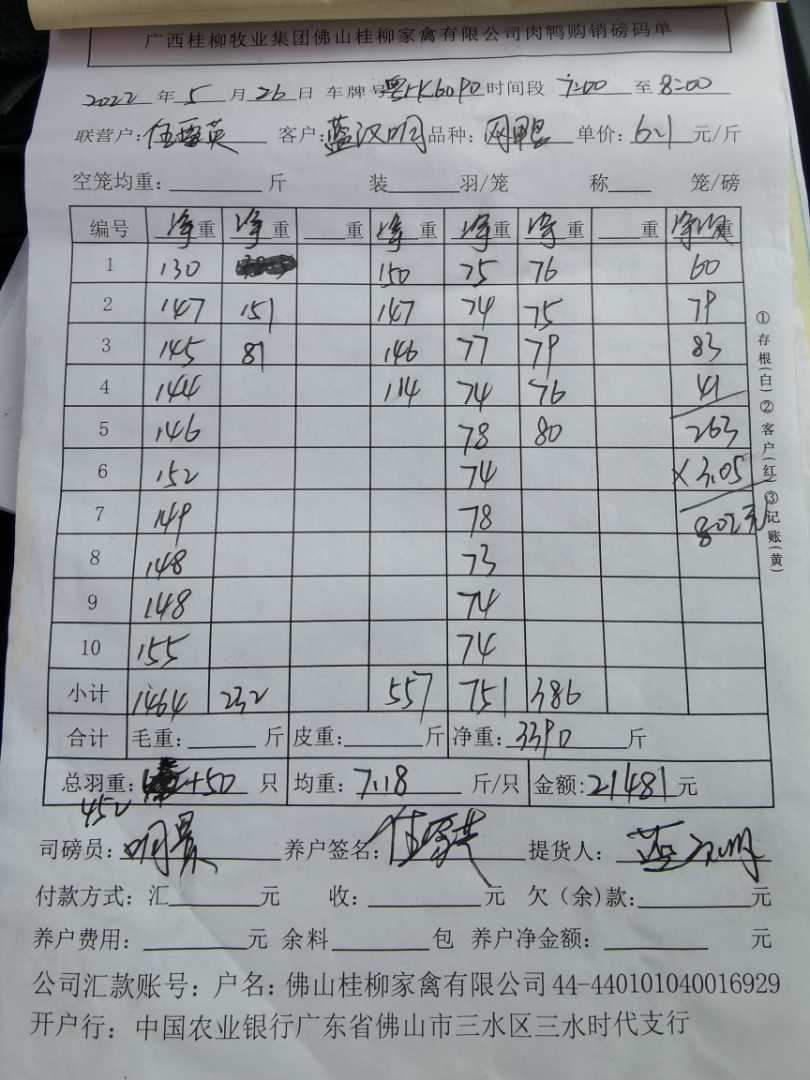 广西桂柳牧业集团佛山桂柳家禽有限公司肉鸭购销磅码单
2022年5月26日 车牌号 时间段 7:00 至 8:00
联营户: 客户:蓝汉明 品种: 单价:6.1元/斤
空笼均重: 斤 装 羽/笼 称 笼/磅
编号 净重 净重 重 净重 净重 净重 重 重
1 130 150 75 76 60
2 147 151 147 74 75 79
3 145 81 146 77 79 83
4 144 114 74 76 41
5 146 78 80 263
6 152 74 ×3.05
7 149 78 802元
8 148 73
9 148 74
10 155 74
小计 1464 232 557 751 386
合计 毛重: 斤 皮重: 斤 净重:3390斤
总羽重: +50 只 均重:7.18 斤/只 金额:21481元
452
司磅员: 养户签名: 提货人:
付款方式:汇 元 收: 元 欠(余)款: 元
养户费用: 元 余料 包 养户净金额: 元
公司汇款账号:户名:佛山桂柳家禽有限公司 44-440101040016929
开户行:中国农业银行广东省佛山市三水区三水时代支行
①存根(白)②客户(红)③记账(黄)